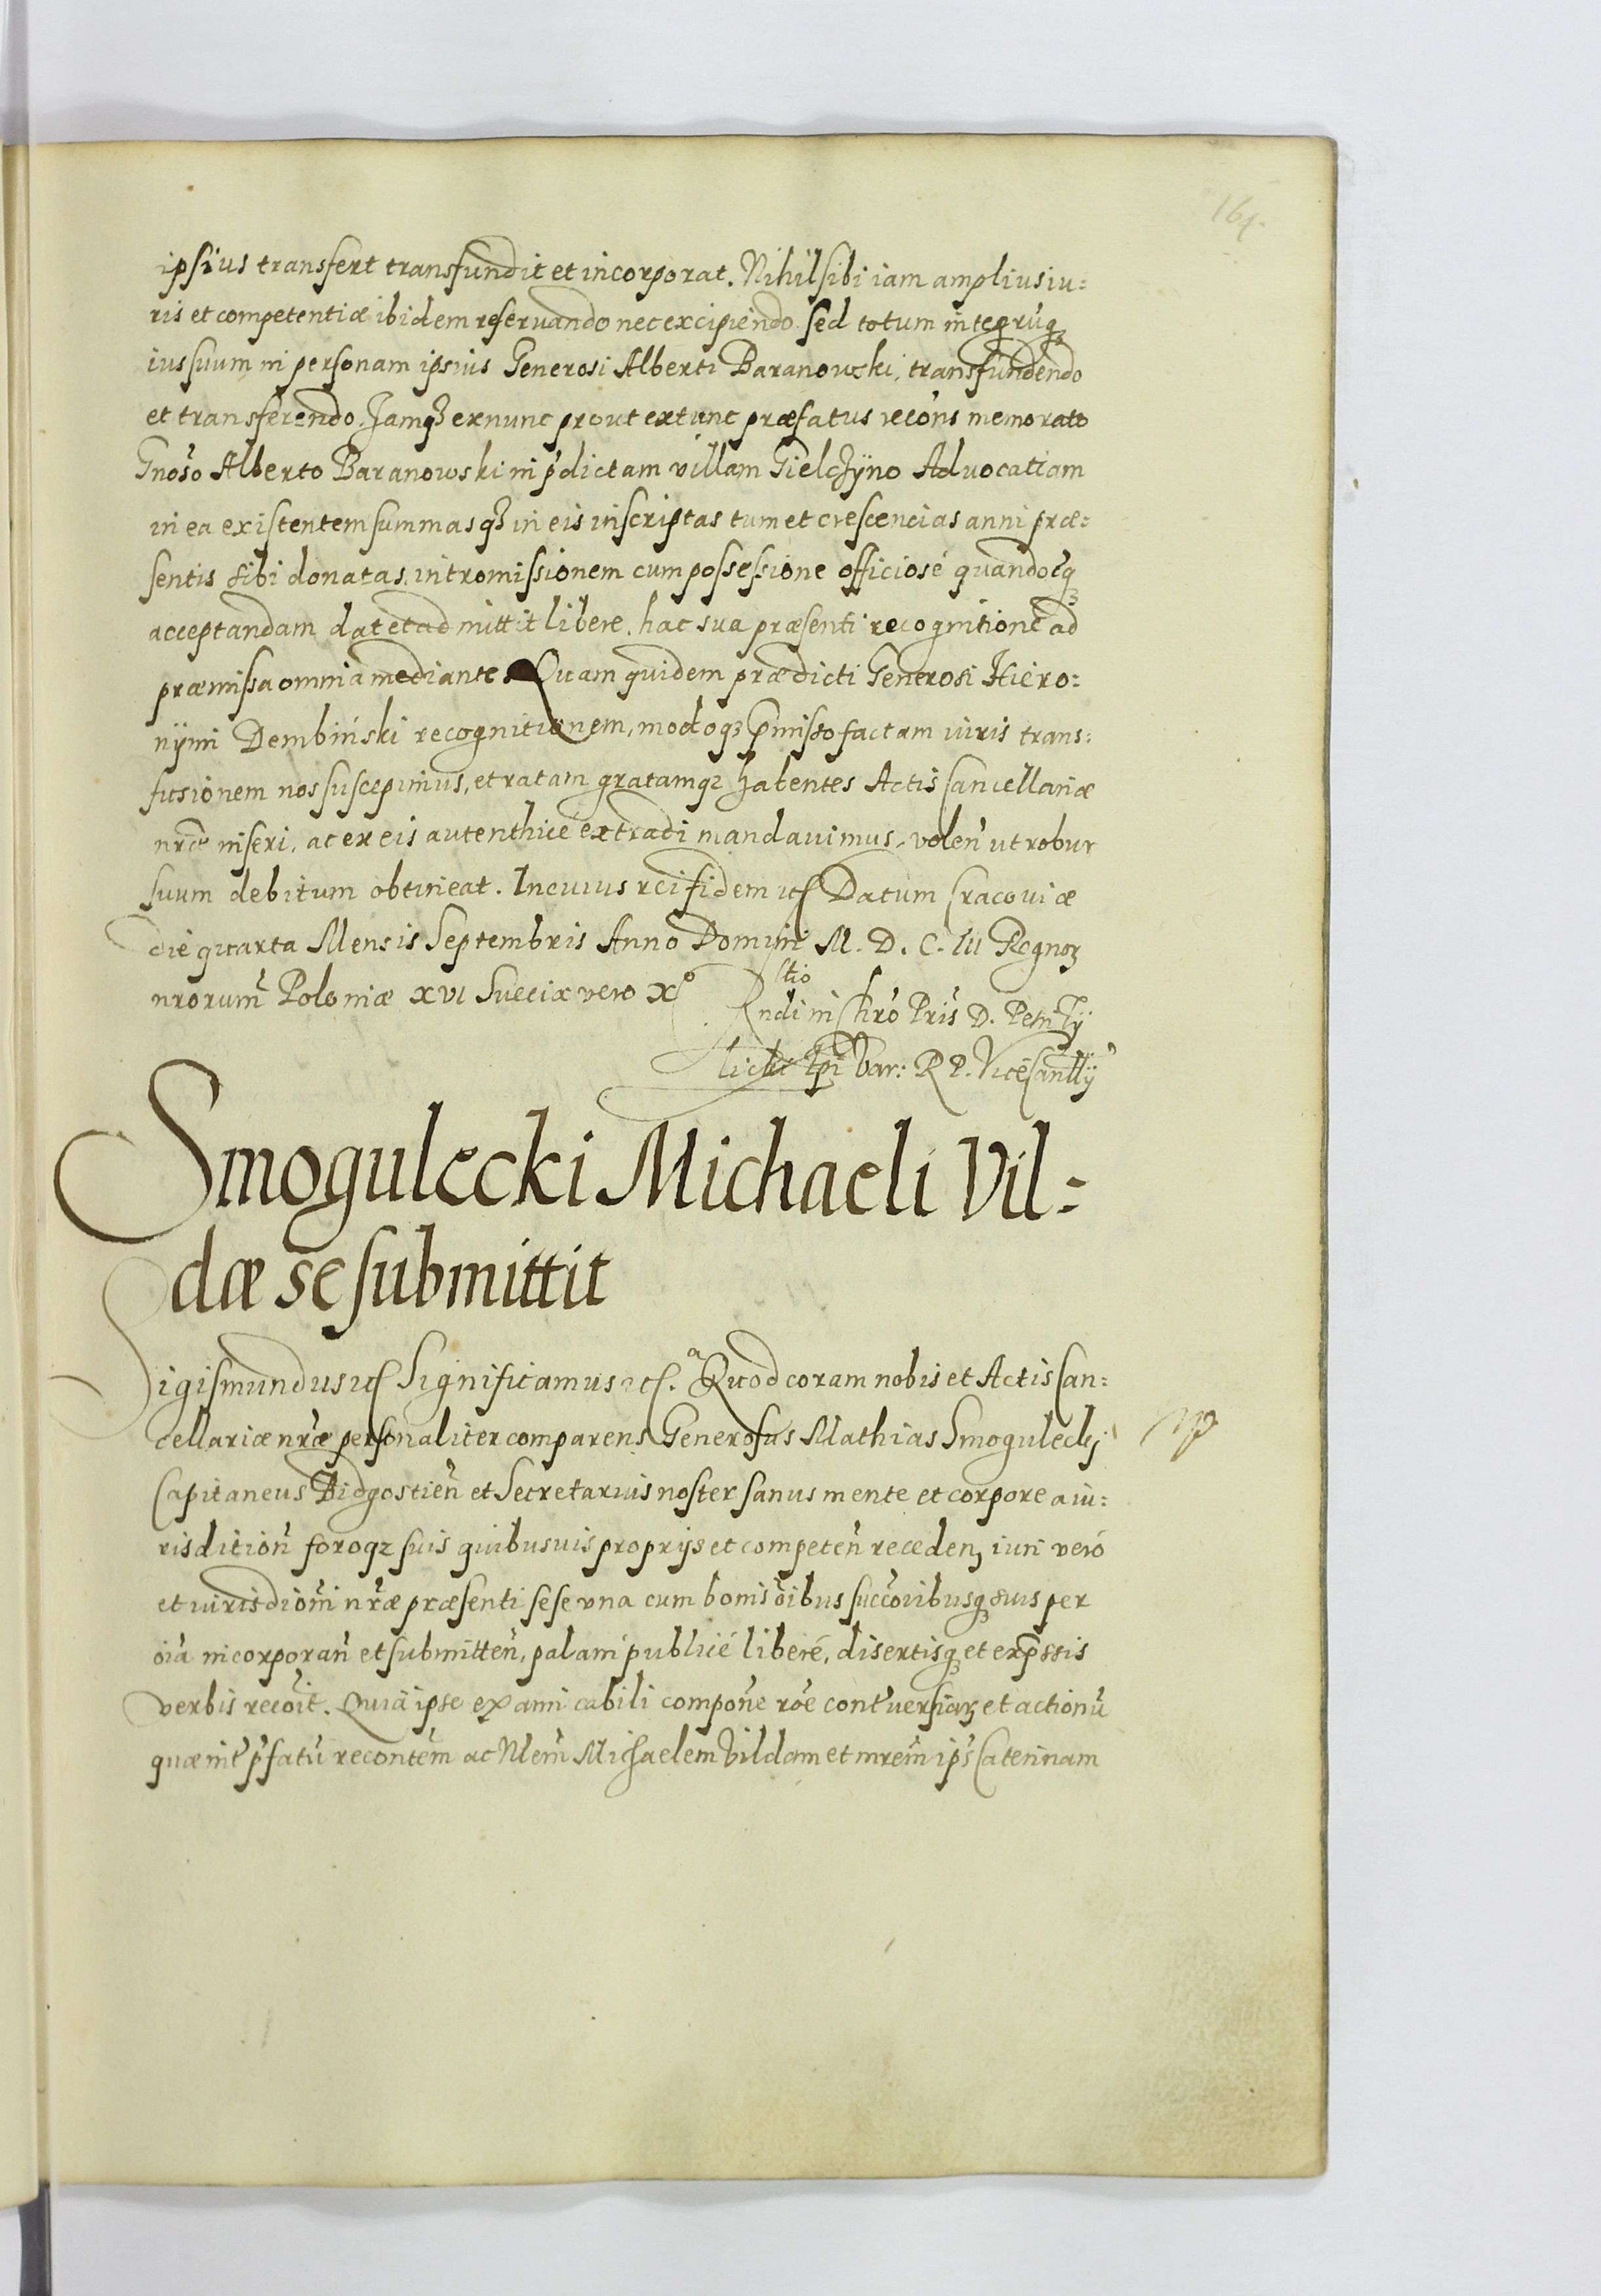 164.
ipsius transfert transfundit et incorporat. Nihil sibi iam amplius iu:
ris et competentiæ ibidem reservando nec excipiendo sed totum integrũq₃
ius suum in personam ipsius Generosi Alberti Baranowski, transfundendo
et transferendo. Jamq₃ ex nunc prout ex tunc præfatus recõns memorato
Gnõso Alberto Baranowski in p̃dictam villam Gielczÿno Advocatiam
in ea existentem summasq₃ in eis inscriptas tum et crescencias anni præ:
sentis sibi donatas, intromissionem cum possessione officiosé quandocq₃
acceptandam dat et admittit libere, hac sua præsenti recognitione ad
præmissa omnia mediante. Quam quidem prædicti Generosi Hiero:
nÿmi Dembiński recognitionem, modoq₃ p̃misso factam iuris trans:
fusionem nos suscepimus, et ratam gratamq₃ habentes Actis Cancellariæ
nrǣ inseri, ac ex eis autenthice extradi mandavimus, volen̄ ut robur
suum debitum obtineat. In cuius rei fidem etc Datum Cracoviæ
die quarta Mensis Septembris Anno Domini M. D. C. III Regnoꝝ
nrorum̃ Poloniæ XVI Sueciæ vero Xº
Rltio
Rndi in Chrõ Pris̃ D. Petri Tÿ
licki Epi Var: R P. Vicecanllÿ
Smogulecki Michaeli Vil=
dæ se submittit
Sigismundus etc Significamus etc. Quod coram nobis et Actis Can:
cellariæ nrǣ personaliter comparens Generosus Mathias Smoguleckj
Capitaneus Bidgostien̄ et Secretarius noster sanus mente et corpore a iu:
risdition̄ foroq₃ suis quibusuis proprijs et competen̄ receden, iuri veró
et iurisdiom̃i nrǣ præsenti sese una cum bonis õibus succõribusq₃ suis per
oĩa incorporan̄ et submitten̄, palam publicé liberé, disertisq₃ et exp̃ssis
verbis recõit. Quia ipse ex amicabili compon̄e rõe cont̃versiaꝝ et actionũ
quæ int̃ p̃fatũ reconten̄m ac Nlem̃ Michaelem Vildam et mrem̃ ip̃s Caterinam